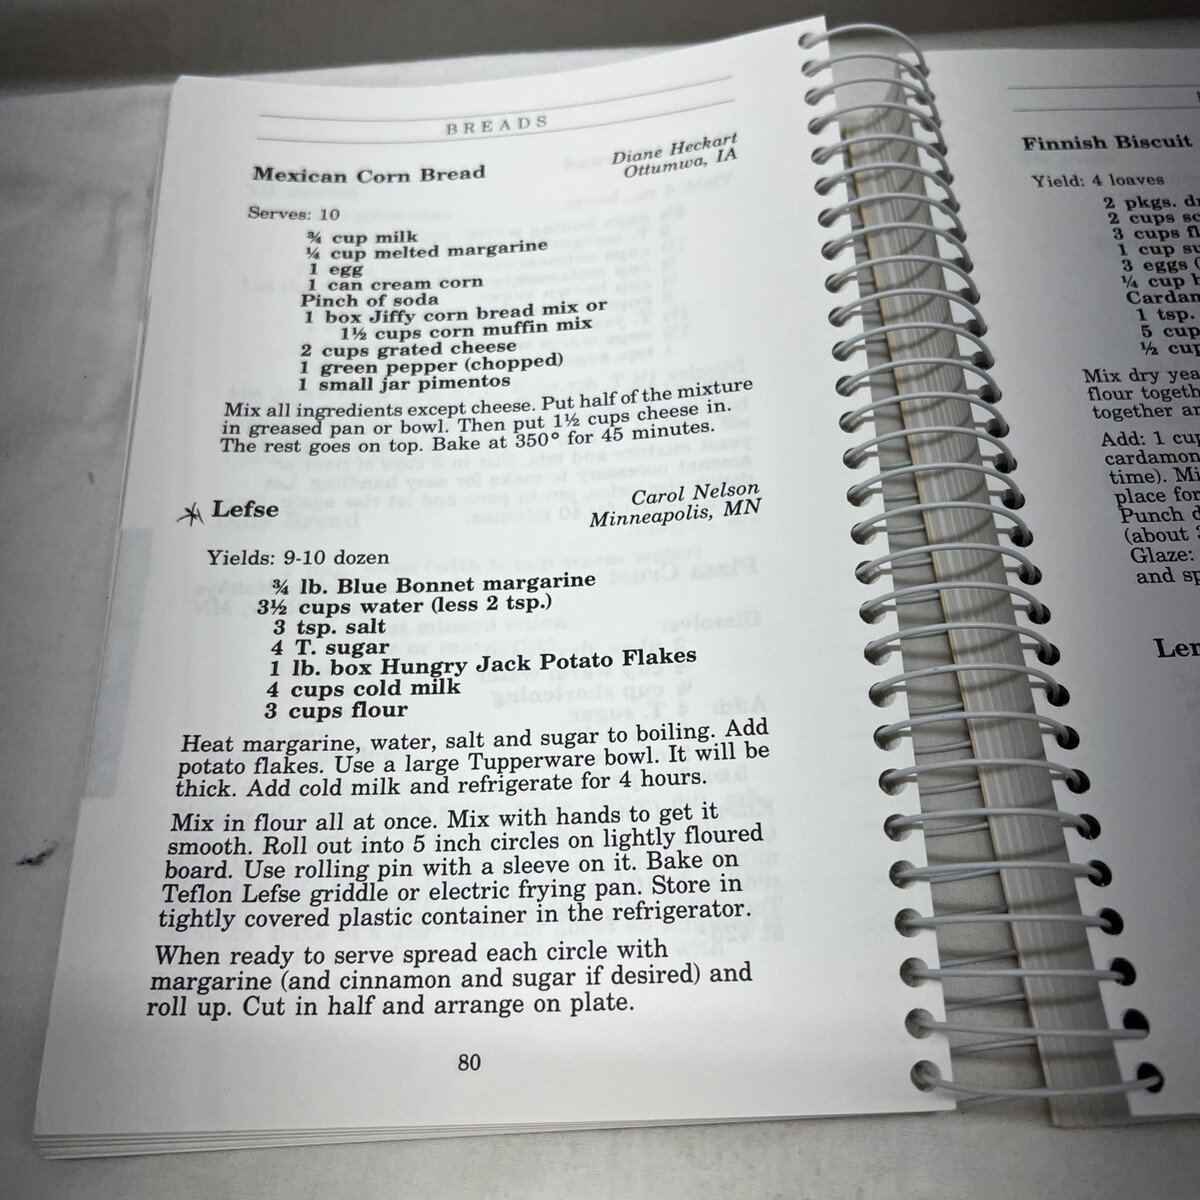 BREADS
Mexican Corn Bread
Diane Heckart
Ottumwa, IA
Serves: 10
¾ cup milk
¼ cup melted margarine
1 egg
1 can cream corn
Pinch of soda
1 box Jiffy corn bread mix or
1½ cups corn muffin mix
2 cups grated cheese
1 green pepper (chopped)
1 small jar pimentos
Mix all ingredients except cheese. Put half of the mixture
in greased pan or bowl. Then put 1½ cups cheese in.
The rest goes on top. Bake at 350° for 45 minutes.
Lefse
Carol Nelson
Minneapolis, MN
Yields: 9-10 dozen
¾ lb. Blue Bonnet margarine
3½ cups water (less 2 tsp.)
3 tsp. salt
4 T. sugar
1 lb. box Hungry Jack Potato Flakes
4 cups cold milk
3 cups flour
Heat margarine, water, salt and sugar to boiling. Add
potato flakes. Use a large Tupperware bowl. It will be
thick. Add cold milk and refrigerate for 4 hours.
Mix in flour all at once. Mix with hands to get it
smooth. Roll out into 5 inch circles on lightly floured
board. Use rolling pin with a sleeve on it. Bake on
Teflon Lefse griddle or electric frying pan. Store in
tightly covered plastic container in the refrigerator.
When ready to serve spread each circle with
margarine (and cinnamon and sugar if desired) and
roll up. Cut in half and arrange on plate.
80
Finnish Biscuit
Yield: 4 loaves
2 pkgs.
2 cups
3 cups
1 cup
3 eggs
¼ cup
1 tsp.
5
½
Mix dry
flour
together
Add: 1
cardamon
time).
place for
Punch
(about
Glaze:
and